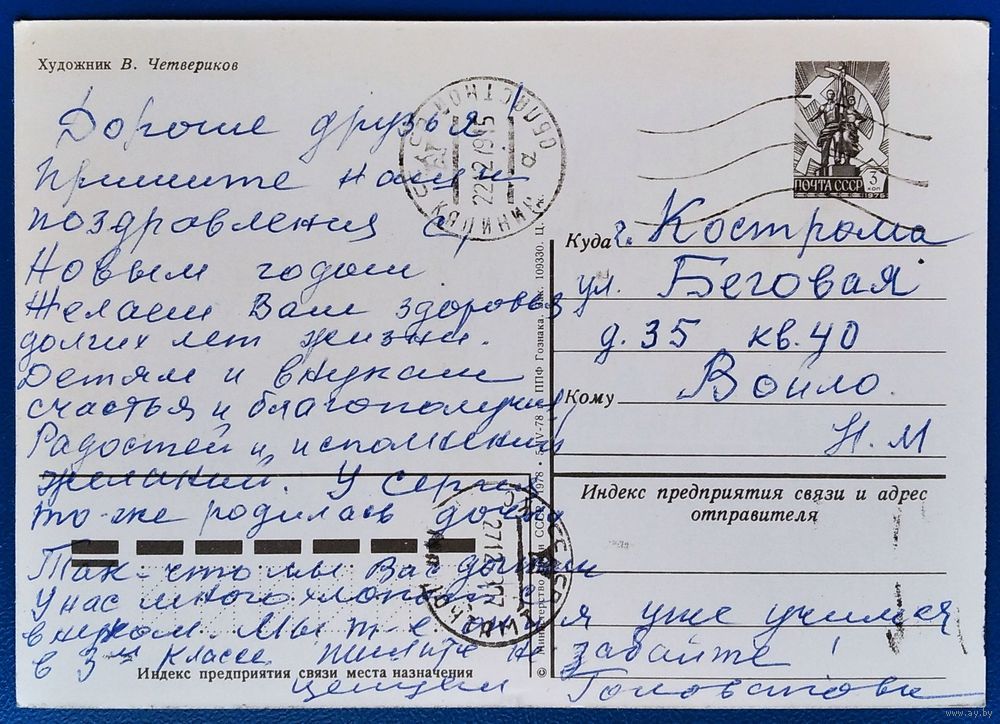 Художник В. Четвериков
Дорогие друзья
Примите наши
поздравления с
Новым годом
Желаем Вам здоровья
долгих лет жизни.
Детям и внукам
счастья и благополучия
Радостей и исполнений
желаний. У Сергия
то-же родилась дочка
Так-что мы Вас догнали
У нас много хлопот с
внуком. Мы уже учимся
в 3м классе пишите не забайте!
целуем Головатовы
ПОЧТА СССР 3 КОП
1976
Куда г. Кострома
ул. Беговая
д. 35 кв. 40
Кому Войло
Н. М
Индекс предприятия связи и адрес
отправителя
Индекс предприятия связи места назначения
© Министерство связи СССР. 1978 • 5-IV-78 г. ППФ Гознака. Зак. 109330. Ц. 4 к.
ОБЛАСТНОЙ
www.ay.by